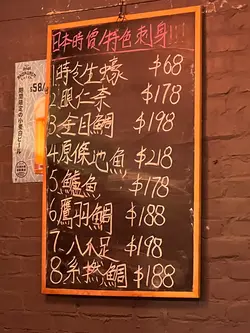 日本時價/特色刺身!!!
1.時令生蠔 $68
2.眼仁奈 $178
3.金目鯛 $198
4.原條地魚 $218
5.鱸魚 $178
6.鷹羽鯛 $188
7.八木足 $198
8.系撚鯛 $188
$58/
期間限定の小麦白ビール